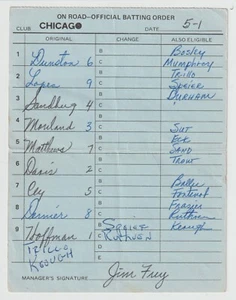 ON ROAD-OFFICIAL BATTING ORDER
CLUB CHICAGO DATE 5-1
ORIGINAL CHANGE ALSO ELIGIBLE
1 Dunston 6 B Bosley
C Mumphrey
2 Lopes 9 B Trillo
C Speier
3 Sandberg 4 B Durham
C
4 Moreland 3 B Sut
C Eck
5 Matthews 7 B Sand
C Trout
6 Davis 2 B
C
7 Cey 5 B Baller
C Fontenot
8 Dernier 8 B Frazier
C Ruthven
9 Hoffman 1 B Speier Keough
C Ruthven
Trillo D
Keough E
MANAGER'S SIGNATURE Jim Frey